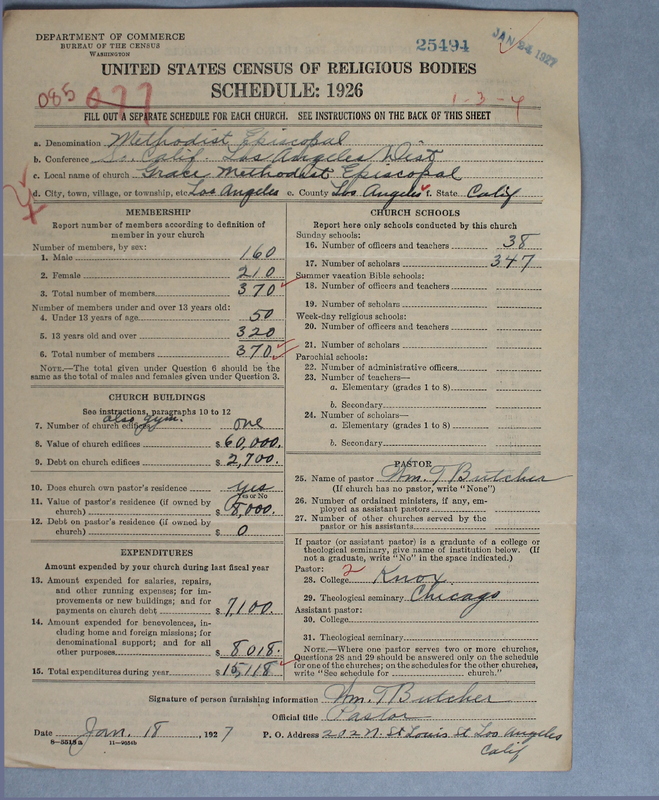 DEPARTMENT OF COMMERCE
BUREAU OF THE CENSUS
WASHINGTON
25494
JAN 24 1927
UNITED STATES CENSUS OF RELIGIOUS BODIES
SCHEDULE: 1926
085 077
1-3-4
FILL OUT A SEPARATE SCHEDULE FOR EACH CHURCH. SEE INSTRUCTIONS ON THE BACK OF THIS SHEET
a. Denomination Methodist Episcopal
b. Conference So. Calif. Los Angeles Dist
c. Local name of church Grace Methodist Episcopal
d. City, town, village, or township, etc. Los Angeles e. County Los Angeles f. State Calif
MEMBERSHIP
Report number of members according to definition of
member in your church
Number of members, by sex:
1. Male 160
2. Female 210
3. Total number of members 370
Number of members under and over 13 years old:
4. Under 13 years of age 50
5. 13 years old and over 320
6. Total number of members 370
NOTE.—The total given under Question 6 should be the
same as the total of males and females given under Question 3.
CHURCH BUILDINGS
See instructions, paragraphs 10 to 12
also gym.
7. Number of church edifices one
8. Value of church edifices $ 60,000.
9. Debt on church edifices $ 2,700.
10. Does church own pastor's residence yes
Yes or No
11. Value of pastor's residence (if owned by
church) $ 8,000.
12. Debt on pastor's residence (if owned by
church) $ 0
EXPENDITURES
Amount expended by your church during last fiscal year
13. Amount expended for salaries, repairs,
and other running expenses; for im-
provements or new buildings; and for
payments on church debt $ 7,100.
14. Amount expended for benevolences, in-
cluding home and foreign missions; for
denominational support; and for all
other purposes $ 8018.
15. Total expenditures during year $ 15,118
CHURCH SCHOOLS
Report here only schools conducted by this church
Sunday schools:
16. Number of officers and teachers 38
17. Number of scholars 347
Summer vacation Bible schools:
18. Number of officers and teachers
19. Number of scholars
Week-day religious schools:
20. Number of officers and teachers
21. Number of scholars
Parochial schools:
22. Number of administrative officers
23. Number of teachers—
a. Elementary (grades 1 to 8)
b. Secondary
24. Number of scholars—
a. Elementary (grades 1 to 8)
b. Secondary
PASTOR
25. Name of pastor Wm. T Butcher
(If church has no pastor, write "None")
26. Number of ordained ministers, if any, em-
ployed as assistant pastors
27. Number of other churches served by the
pastor or his assistants
If pastor (or assistant pastor) is a graduate of a college or
theological seminary, give name of institution below. (If
not a graduate, write "No" in the space indicated.)
Pastor: 2
28. College Knox
29. Theological seminary Chicago
Assistant pastor:
30. College
31. Theological seminary
NOTE.—Where one pastor serves two or more churches,
Questions 28 and 29 should be answered only on the schedule
for one of the churches; on the schedules for the other churches,
write "See schedule for church."
Signature of person furnishing information Wm. T Butcher
Official title Pastor
Date Jan. 18, 1927 P. O. Address 202 N. St Louis St Los Angeles
Calif
8—5518a 11—9654b